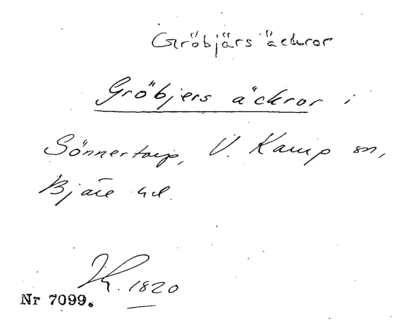 Gröbjärs äckror
Gröbjers äckror i
Sönnertorp, V. Karup sn,
Bjäre hd.
K. 1820
Nr 7099.